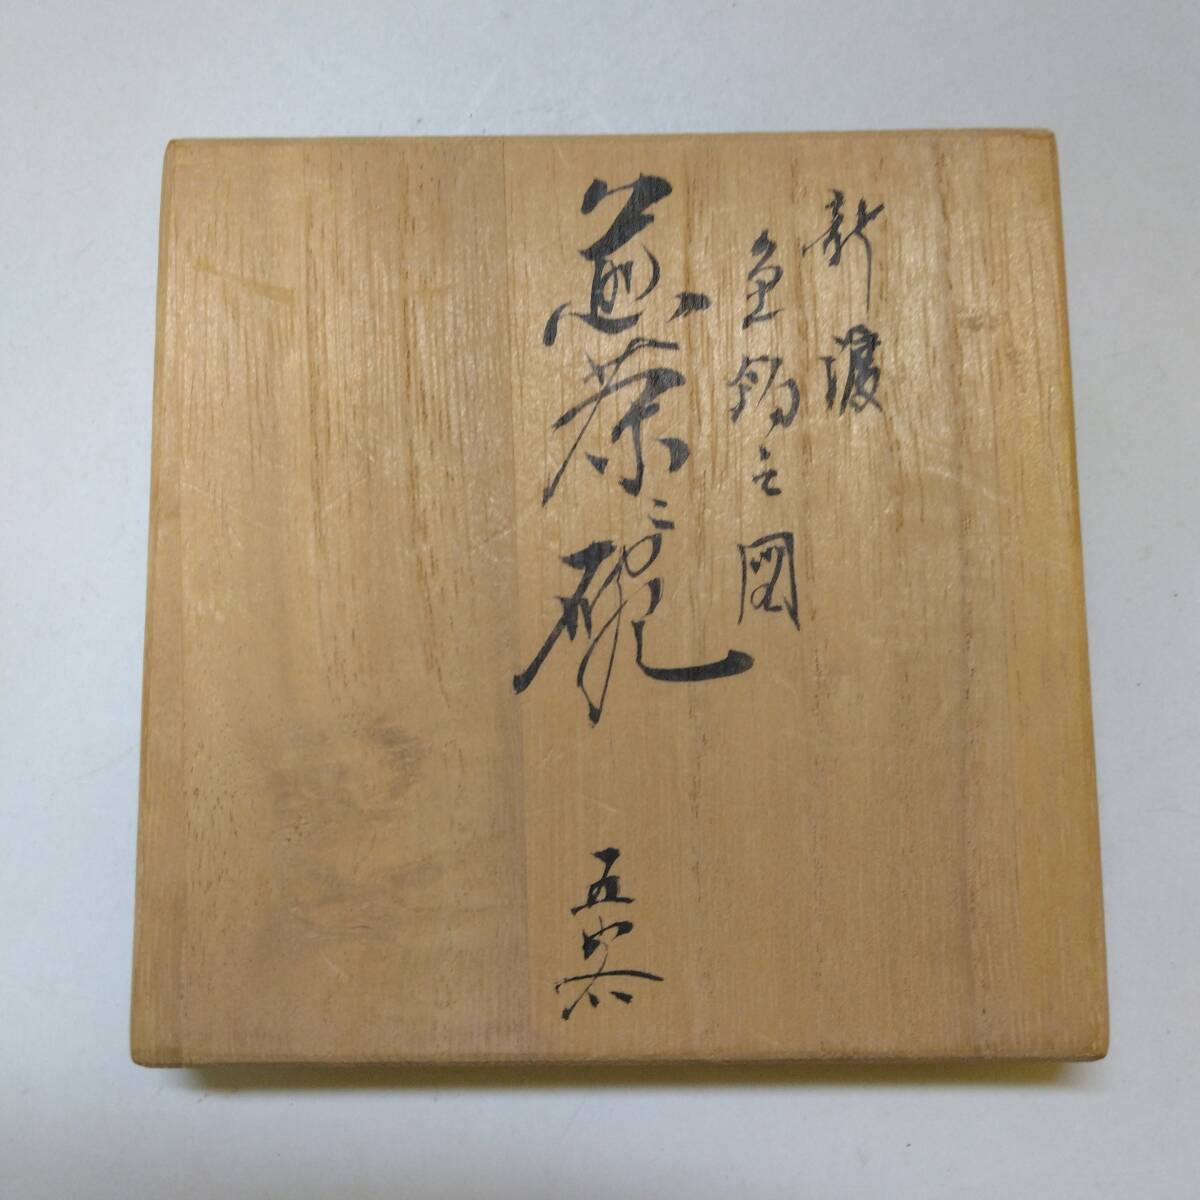 新渡
魚釣之図
煎茶碗
五客